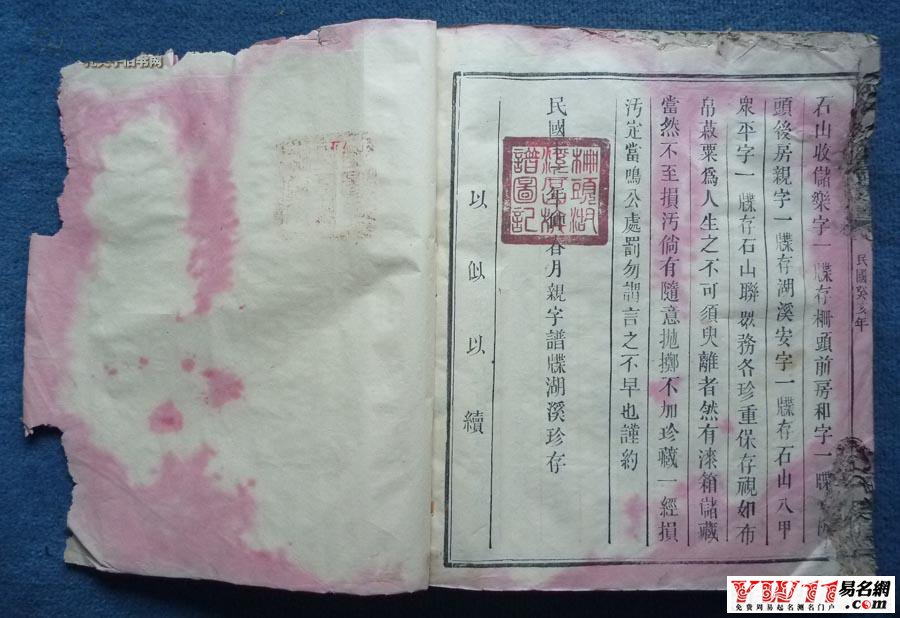 石山收儲樂字一牒存柵頭前房和字一牒
頭後房親字一牒存湖溪安字一牒存石山八甲
衆平字一牒存石山聯衆務各珍重保存視如布
帛菽粟爲人生之不可須臾離者然有漆箱儲藏
當然不至損汚倘有隨意抛擲不加珍藏一經損
汚定當鳴公處罰勿謂言之不早也謹約
民國 春月親字譜牒湖溪珍存
柵頭湖
譜圖記
以似以續
民國癸亥年
YW11易名網
.com
免费周易起名测名门户